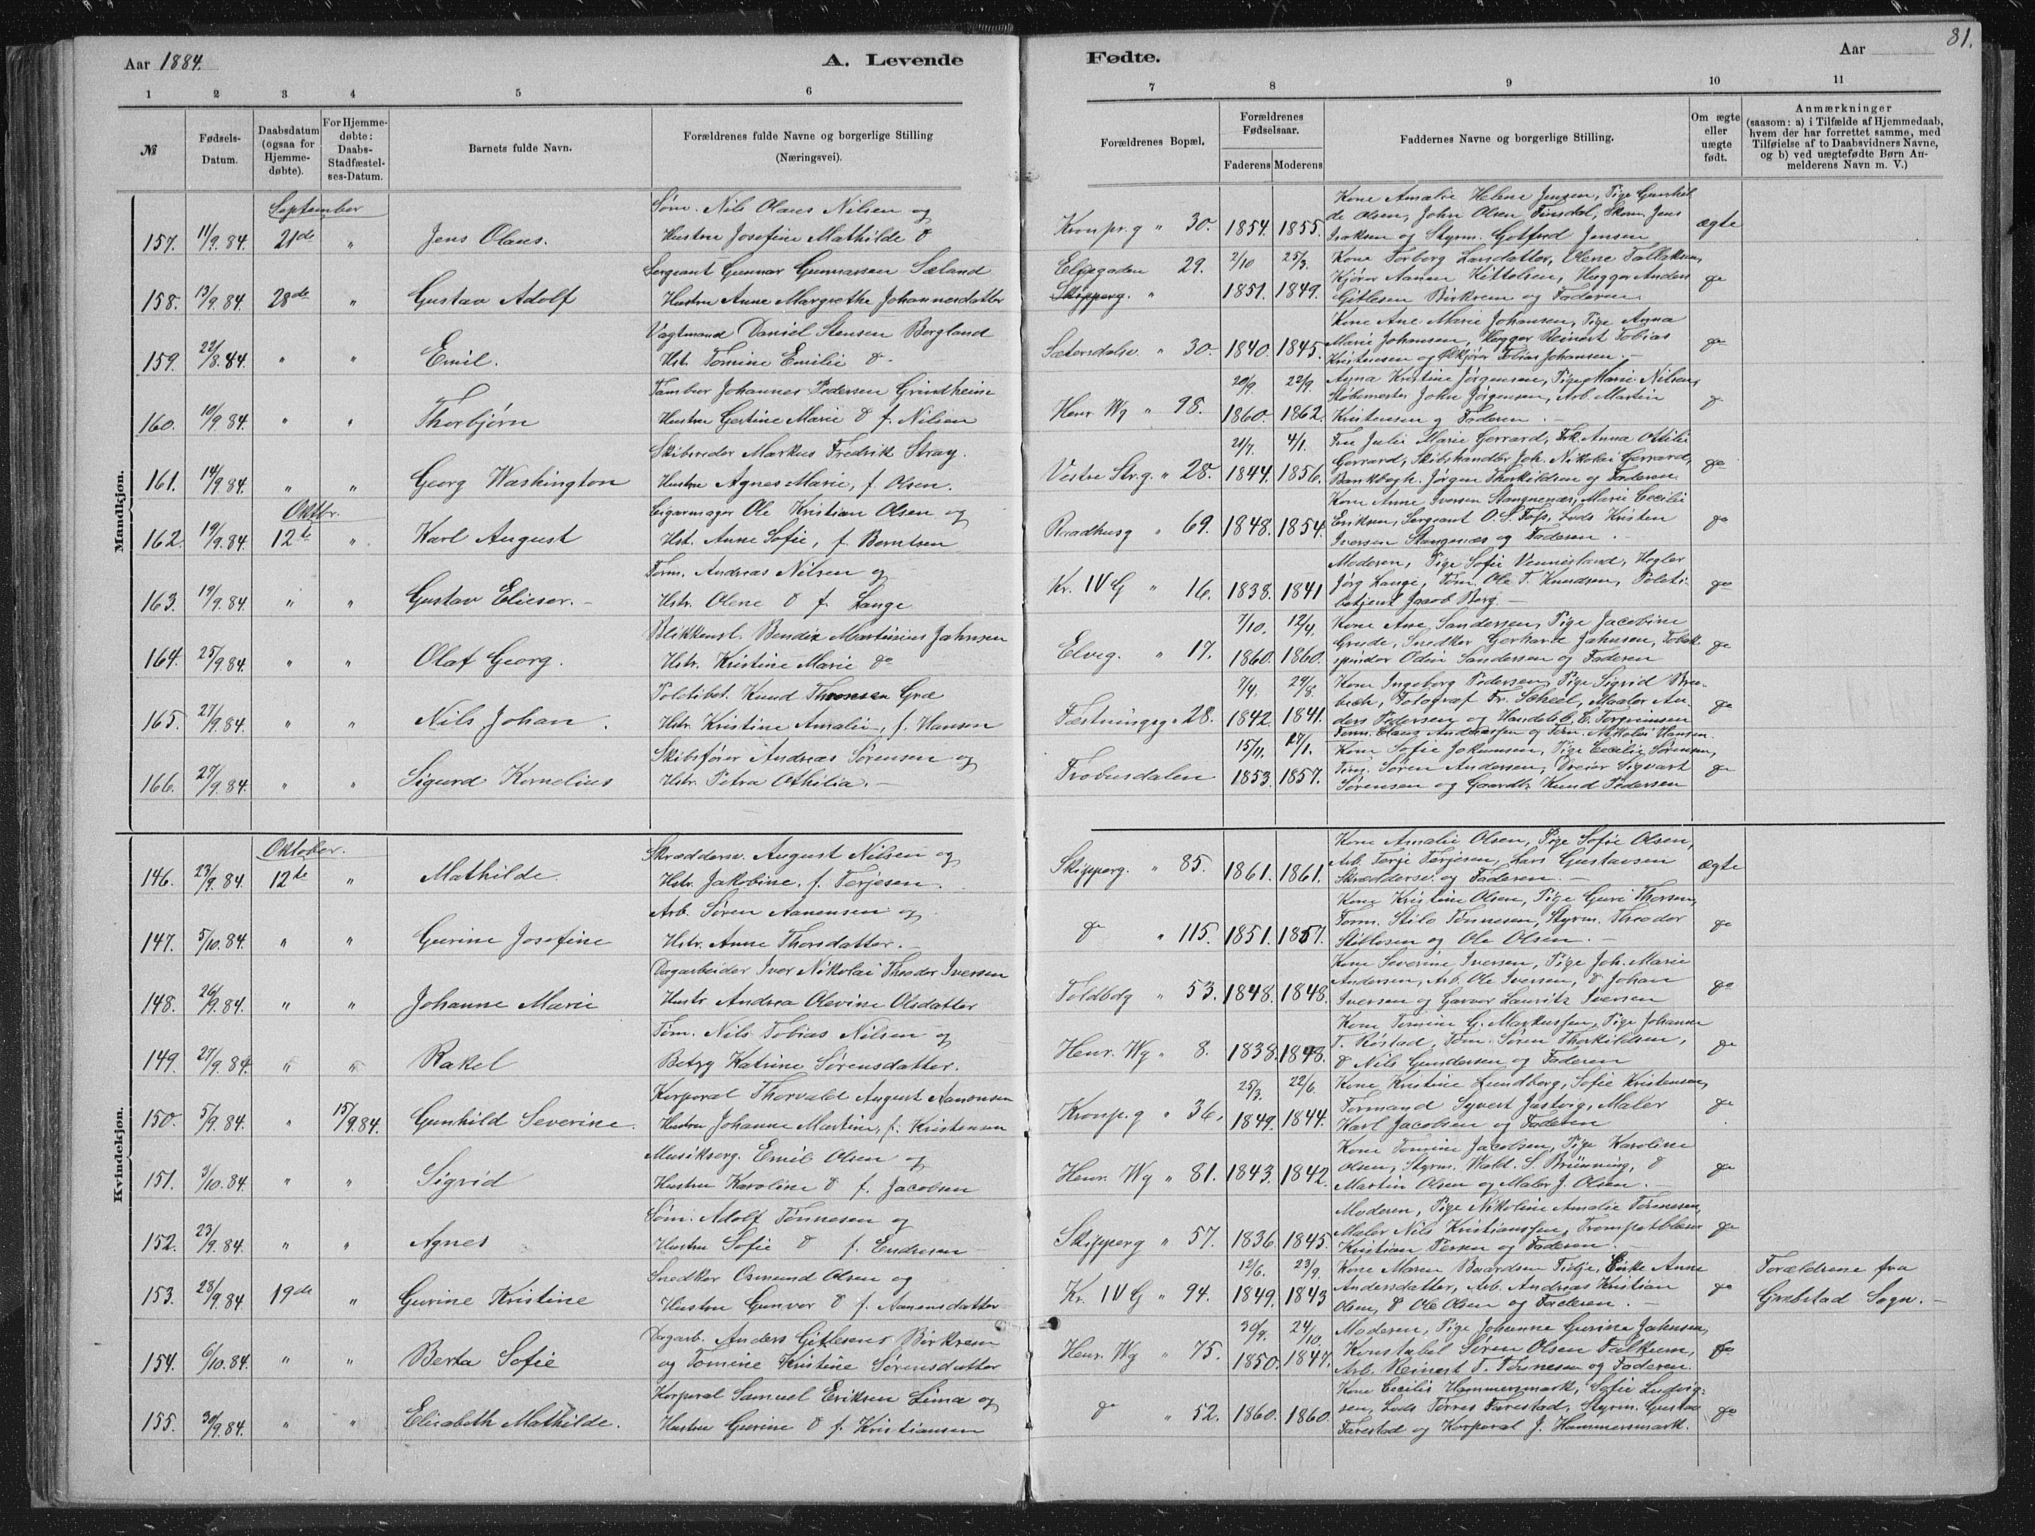 Aar 1884.
A. Levende
Fødte.
Aar
81.
1 2 3 4 5 6 7 8 9 10 11
№
Fødsels-
Datum.
Daabsdatum
(ogsaa for
Hjemme-
døbte).
For Hjemme-
døbte:
Daabs-
Stadfæstel-
ses-Datum.
Barnets fulde Navn.
Forældrenes fulde Navne og borgerlige Stilling
(Næringsvei).
Forældrenes Bopæl.
Forældrenes
Fødselsaar.
Faderens Moderens
Faddernes Navne og borgerlige Stilling.
Om ægte
eller
uægte
født.
Anmærkninger
(saasom: a) i Tilfælde af Hjemmedaab,
hvem der har forrettet samme, med
Tilføielse af to Daabsvidners Navne,
og b) ved uægtefødte Børn An-
melderens Navn m. V.)
Mandkjøn.
September
Søm. Nils Olaus Nilsen og
Kone Amalie Helene Jensen, Pige Gunhil-
de Olsen, John Olsen Tinsdal, Skom. Jens
157. 11/9.84. 21de " Jens Olaus. Hustru Josefine Mathilde d Kronpr.g " 30. 1854. 1855. Isaksen og Styrm. Gotfred Jensen ægte
Sergeant Gunnar Gunnarsen Sæland
Elvegaden 29. 2/10 25/3 Kone Torborg Larsdatter, Olene Tallaksen,
Kjører Aanen Kittelsen, Hugger Anders
158. 13/9.84. 28de " Gustav Adolf Hustru Anne Margrethe Johannesdatter Skipperg. " 1851. 1849. Gitlesen Birkrem og Faderen do
Vagtmand Daniel Stensen Bergland
Kone Ane Marie Johansen, Pige Anna
Marie Johansen, Hugger Reinert Tobias
159. 22/8.84. " " Emil. Hst. Tomine Emilie d. Sætersdalsv. " 30. 1840. 1845. Kristensen og Tobias Johansen. do
Tambur Johannes Pedersen Grindheim
20/9. 22/9. Anna Kristine Jørgensen, Pige Marie Nilsen,
Støbemester John Jørgensen, Arb. Martin
160. 10/9.84. " " Thorbjørn Hustru Gertine Marie d f. Nilsen Henr. Wg " 98. 1860. 1862. Kristensen og Faderen. d
Skibsreder Markus Fredrik Stray.
21/7. 4/1. Fru Julie Marie Gerrard, Frk. Anna Otilie
Gerrard, Skibshandler Joh. Nikolai Gerrard,
161. 14/9.84. " " Georg Washington Hustru Agnes Marie, f. Olsen. Vestre Str.g " 28. 1844. 1856. Bankbogh. Jørgen Thorkildsen og Faderen. do
Oktbr.
Cigarmager Ole Kristian Olsen og
Kone Anne Iversen Stangenæs, Marie Cecilie
Eriksen, Sergeant O. S. Foss, Lods Kristen
162. 19/9.84. 12te " Karl August Hst. Anne Sofie, f. Berntsen Raadhusg " 69. 1848. 1854. Iversen Stangenæs og Faderen. do
Tøm. Andreas Nilsen og
Moderen, Pige Sofie Vennesland, Høgler
Jörg Lange, Tøm. Ole T. Knudsen, Politi-
163. 19/9.84. " " Gustav Elieser. Hstr. Olene d f. Lange Kr. IV G " 16. 1838. 1841 betjent Jacob Berg. do
Blikkensl. Bendix Martinius Jahnsen
7/10. 12/4. Kone Ane Sandersen, Pige Jacobine
Grude, Snedker Gerhard Jahnsen, Tobak-
164. 25/9.84. " " Olaf Georg. Hstr. Kristine Marie do Elveg. " 17. 1860. 1860. spinder Odin Sandersen og Faderen do
Politibet. Knud Thorsen Gre
7/4. 29/8. Kone Ingeborg Pedersen, Pige Sigrid Bre-
bæk, Fotograf Fr. Scheel, Maaler An-
165. 27/9.84. " " Nils Johan. Hstr. Kristine Amalie, f. Hansen Fæstningsg " 28. 1842. 1841. ders Pedersen og Handelsb. E. Torgrimsen do
Tøm. Claus Andreassen og Tøm. Nikolai Hansen.
Skibsfører Andreas Sørensen og
15/11. 27/1. Kone Sofie Johannsen, Pige Cecilie Sørensen,
Tøm. Søren Andersen, Dreier Sigvart
166. 27/9.84. " " Sigurd Kornelius Hstr. Petra Othilia. Frobusdalen 1853. 1857. Sørensen og Gaardbr. Knud Pedersen do
Kvindekjøn.
Oktober.
Skræddersv. August Nilsen og
Kone Amalie Olsen, Pige Sofie Olsen,
Arb. Terje Terjesen, Lars Gustavsen
146. 23/9.84. 12te " Mathilde. Hstr. Jakobine, f. Terjesen. Skipperg. " 85. 1861. 1861. Skræddersv. og Faderen. ægte
Arb. Søren Aanensen og
Kone Kristine Olsen, Pige Guri Thorsen,
Tørm. Stilo Tønnesen, Styrm. Theodor
147. 5/10.84. " " Gurine Josefine Hstr. Anne Thorsdatter. d " 115. 1851. 1857. Stillosen og Ole Olsen. do
Dagarbeider Iver Nikolai Theodor Iversen
Kone Severine Iversen, Pige Joh. Marie
Andersen, Arb. Ole Iversen, d Johan
148. 26/9.84. " " Johanne Marie Hustr Andrea Olevine Olsdatter Toldbdg " 53. 1848. 1848. Iversen og Garver Lauritz Iversen do
Tøm. Nils Tobias Nilsen og
Kone Tomine G. Markussen, Pige Johanne
T. Røstad, Tøm. Søren Thorkildsen,
149. 27/9.84. " " Rakel Betzy Katrine Sørensdatter. Henr. Wg " 8. 1838. 1848. d Nils Gundersen og Faderen do
Korporal Thorvald August Aanonsen
25/3. 22/6. Kone Kristine Lundberg, Sofie Kristensen,
Tørmand Syvert Jastvig, Maler
150. 5/9.84. " 15/9.84. Gunhild Severine. Hustru Johanne Martine, f. Kristensen Kronp.g " 36. 1849. 1844. Karl Jacobsen og Faderen do
Musikserg. Emil Olsen og
Kone Tomine Jacobsen, Pige Karoline
Olsen, Styrm. Wald. S. Brünning, d
151. 3/10.84. " " Sigrid Hustru Karoline d f. Jacobsen Henr. Wg " 81. 1843. 1842. Martin Olsen og Maler J. Olsen. do
Søm. Adolf Tønnesen og
Moderen, Pige Nikoline Amalie Tønnesen,
Maler Nils Kristianssen, Trompetblæser
152. 23/9.84. " " Agnes Hustru Sofie d f. Endresen Skipperg " 57. 1836. 1845. Kristian Persen og Faderen. do
Snedker Osmund Olsen og
12/6. 23/9. Kone Maren Baardsen Tidje, Enke Anne
Andersdatter, Arb. Andreas Kristian
Forældrene fra
153. 28/9.84. 19de " Gurine Kristine Hustru Gunvor d f. Aanensdatter Kr. IV G " 94. 1849. 1843 Olsen, d Ole Olsen og Faderen. do Gravstad Sogn.
Dagarb. Anders Gitlesens Birkrem
30/9. 24/10. Moderen, Pige Johanne Gurine Jahnsen,
Konstabel Søren Olsen Falkum,
154. 6/10.84. " " Berta Sofie og Tomine Kristine Sørensdatter Henr. Wg " 75. 1850. 1847. Arb. Reinert T. Tønnesen og Faderen. do
Korporal Samuel Eriksen Lima og
Kone Cecilie Hammersmark, Sofie Ludvig-
sen, Lods Torres Farestad, Styrm. Gustav
155. 30/9.84. " " Elisabeth Mathilde. Hustru Gurine d f. Kristiansen d " 52. 1860. 1860. Farestad og Korporal J. Hammersmark. do